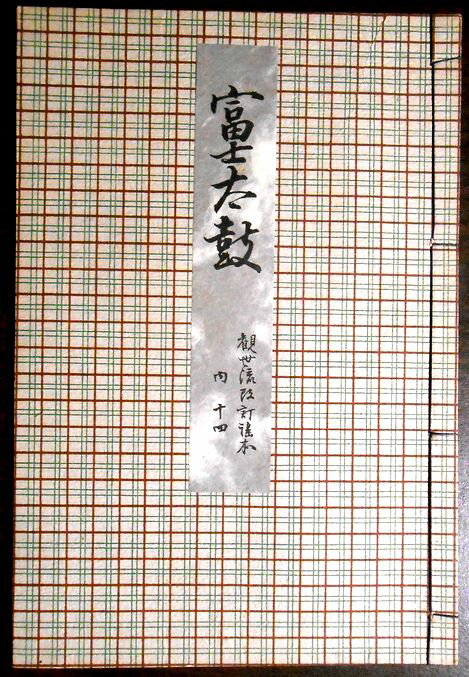 富士太鼓
觀世流改訂謡本
内十四